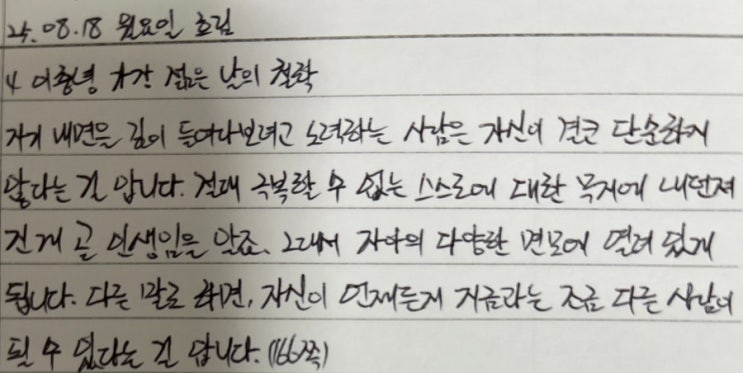 25.08.18 월요일 흐림
4 이충녕 작가 젊은 날의 철학
자기 내면을 깊이 들여다보려고 노력하는 사람은 자신이 결코 단순하지
않다는 걸 압니다. 절대 극복할 수 없는 스스로에 대한 무지에 내던져
진 게 곧 인생임을 알죠. 그래서 자아의 다양한 면모에 열려 있게
됩니다. 다른 말로 하면, 자신이 언제든지 지금과는 조금 다른 사람이
될 수 있다는 걸 압니다. (166쪽)